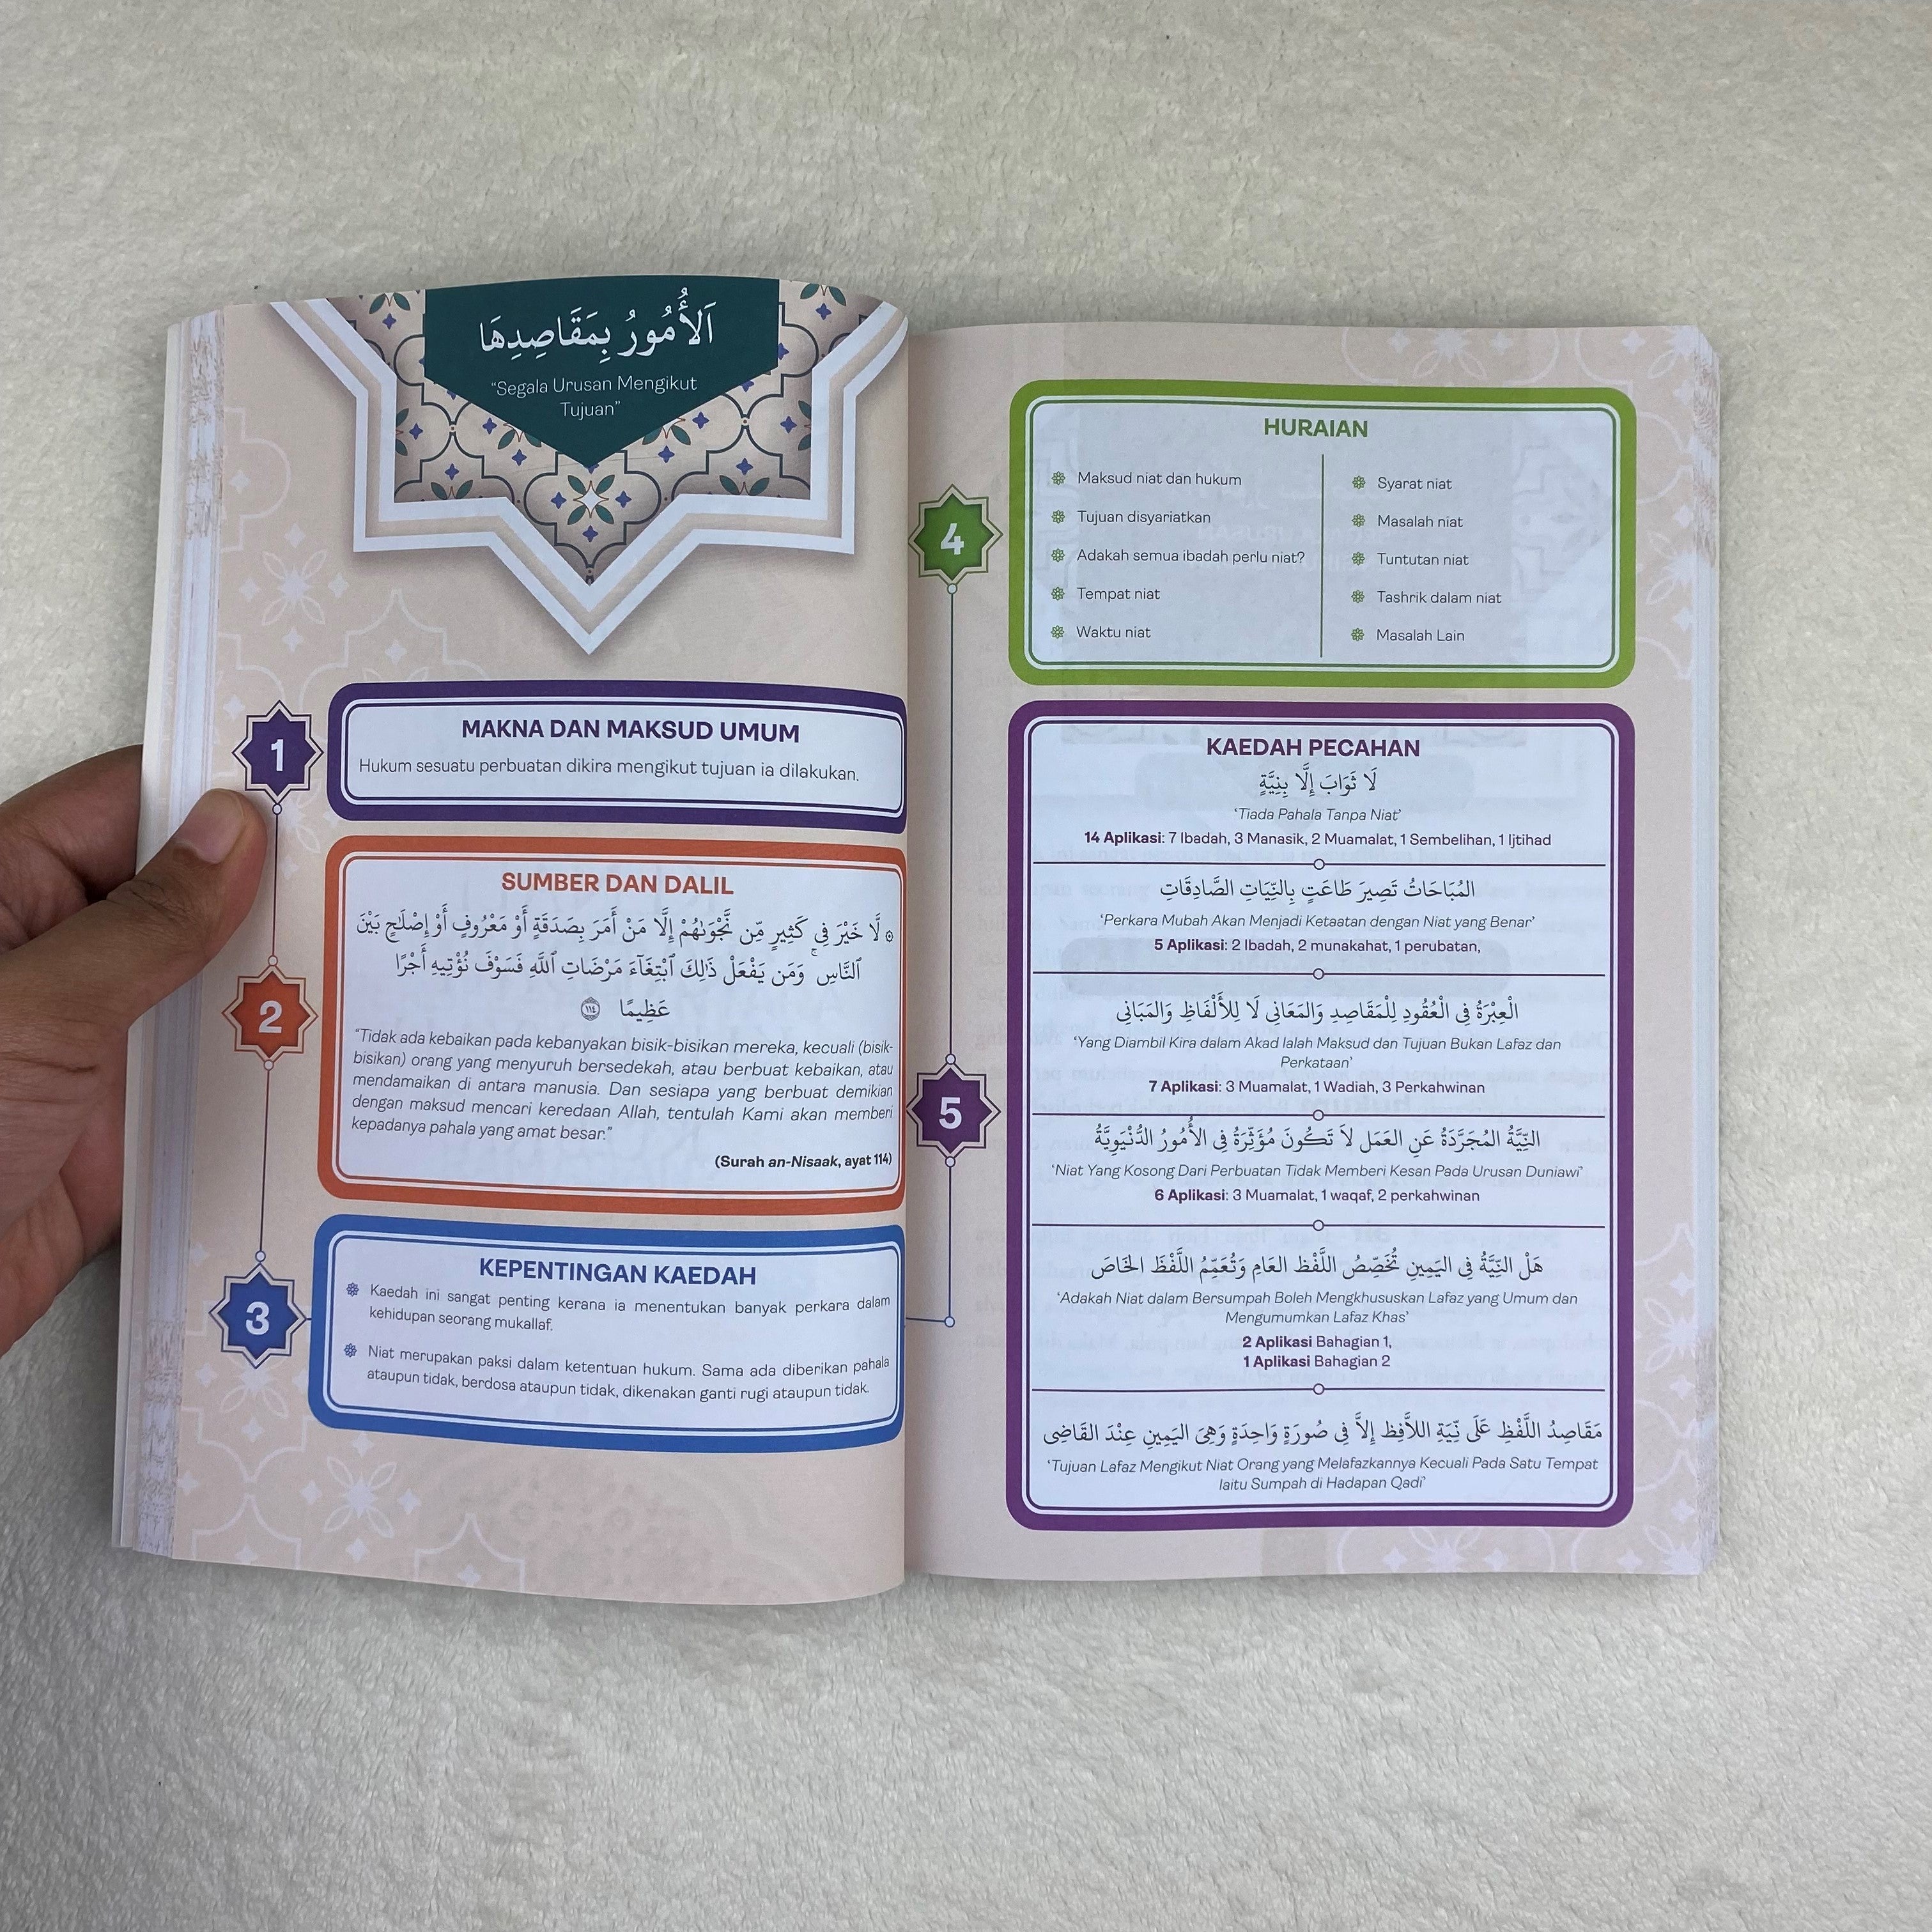 اَلأُمُورُ بِمَقَاصِدِهَا
“Segala Urusan Mengikut
Tujuan”
1
MAKNA DAN MAKSUD UMUM
Hukum sesuatu perbuatan dikira mengikut tujuan ia dilakukan.
2
SUMBER DAN DALIL
۞ لَّا خَيْرَ فِي كَثِيرٍ مِّن نَّجْوَىٰهُمْ إِلَّا مَنْ أَمَرَ بِصَدَقَةٍ أَوْ مَعْرُوفٍ أَوْ إِصْلَٰحٍ بَيْنَ
ٱلنَّاسِ ۚ وَمَن يَفْعَلْ ذَٰلِكَ ٱبْتِغَآءَ مَرْضَاتِ ٱللَّهِ فَسَوْفَ نُؤْتِيهِ أَجْرًا
عَظِيمًا ١١٤
“Tidak ada kebaikan pada kebanyakan bisik-bisikan mereka, kecuali (bisik-
bisikan) orang yang menyuruh bersedekah, atau berbuat kebaikan, atau
mendamaikan di antara manusia. Dan sesiapa yang berbuat demikian
dengan maksud mencari keredaan Allah, tentulah Kami akan memberi
kepadanya pahala yang amat besar.”
(Surah an-Nisaak, ayat 114)
3
KEPENTINGAN KAEDAH
Kaedah ini sangat penting kerana ia menentukan banyak perkara dalam
kehidupan seorang mukallaf.
Niat merupakan paksi dalam ketentuan hukum. Sama ada diberikan pahala
ataupun tidak, berdosa ataupun tidak, dikenakan ganti rugi ataupun tidak.
4
HURAIAN
Maksud niat dan hukum
Tujuan disyariatkan
Adakah semua ibadah perlu niat?
Tempat niat
Waktu niat
Syarat niat
Masalah niat
Tuntutan niat
Tashrik dalam niat
Masalah Lain
5
KAEDAH PECAHAN
لَا ثَوَابَ إِلَّا بِنِيَّةٍ
‘Tiada Pahala Tanpa Niat’
14 Aplikasi: 7 Ibadah, 3 Manasik, 2 Muamalat, 1 Sembelihan, 1 Ijtihad
المُبَاحَاتُ تَصِيرَ طَاعَتٍ بِالنِّيَاتِ الصَّادِقَاتِ
‘Perkara Mubah Akan Menjadi Ketaatan dengan Niat yang Benar’
5 Aplikasi: 2 Ibadah, 2 munakahat, 1 perubatan,
الْعِبْرَةُ فِي الْعُقُودِ لِلْمَقَاصِدِ وَالمَعَانِي لَا لِلأَلْفَاظِ وَالمَبَانِي
‘Yang Diambil Kira dalam Akad Ialah Maksud dan Tujuan Bukan Lafaz dan
Perkataan’
7 Aplikasi: 3 Muamalat, 1 Wadiah, 3 Perkahwinan
النِّيَّةُ المُجَرَّدَةُ عَنِ العَمَل لاَ تَكُونَ مُؤَثِّرَةُ فِي الأُمُورُ الدُّنْيَوِيَّةُ
‘Niat Yang Kosong Dari Perbuatan Tidak Memberi Kesan Pada Urusan Duniawi’
6 Aplikasi: 3 Muamalat, 1 waqaf, 2 perkahwinan
هَلْ النِّيَّةُ فِي اليَمِينِ تُخَصِّصُ اللَّفْظ العَامِ وَتُعَمِّمُ اللَّفْظَ الخَاصَ
‘Adakah Niat dalam Bersumpah Boleh Mengkhususkan Lafaz yang Umum dan
Mengumumkan Lafaz Khas’
2 Aplikasi Bahagian 1,
1 Aplikasi Bahagian 2
مَقَاصِدُ اللَّفْظِ عَلَى نِّيَةِ اللاَّفِظ إِلاَّ فِي صُورَةٍ وَاحِدَةٍ وَهِيَ اليَمِينِ عِنْدَ القَاضِي
‘Tujuan Lafaz Mengikut Niat Orang yang Melafazkannya Kecuali Pada Satu Tempat
Iaitu Sumpah di Hadapan Qadi’